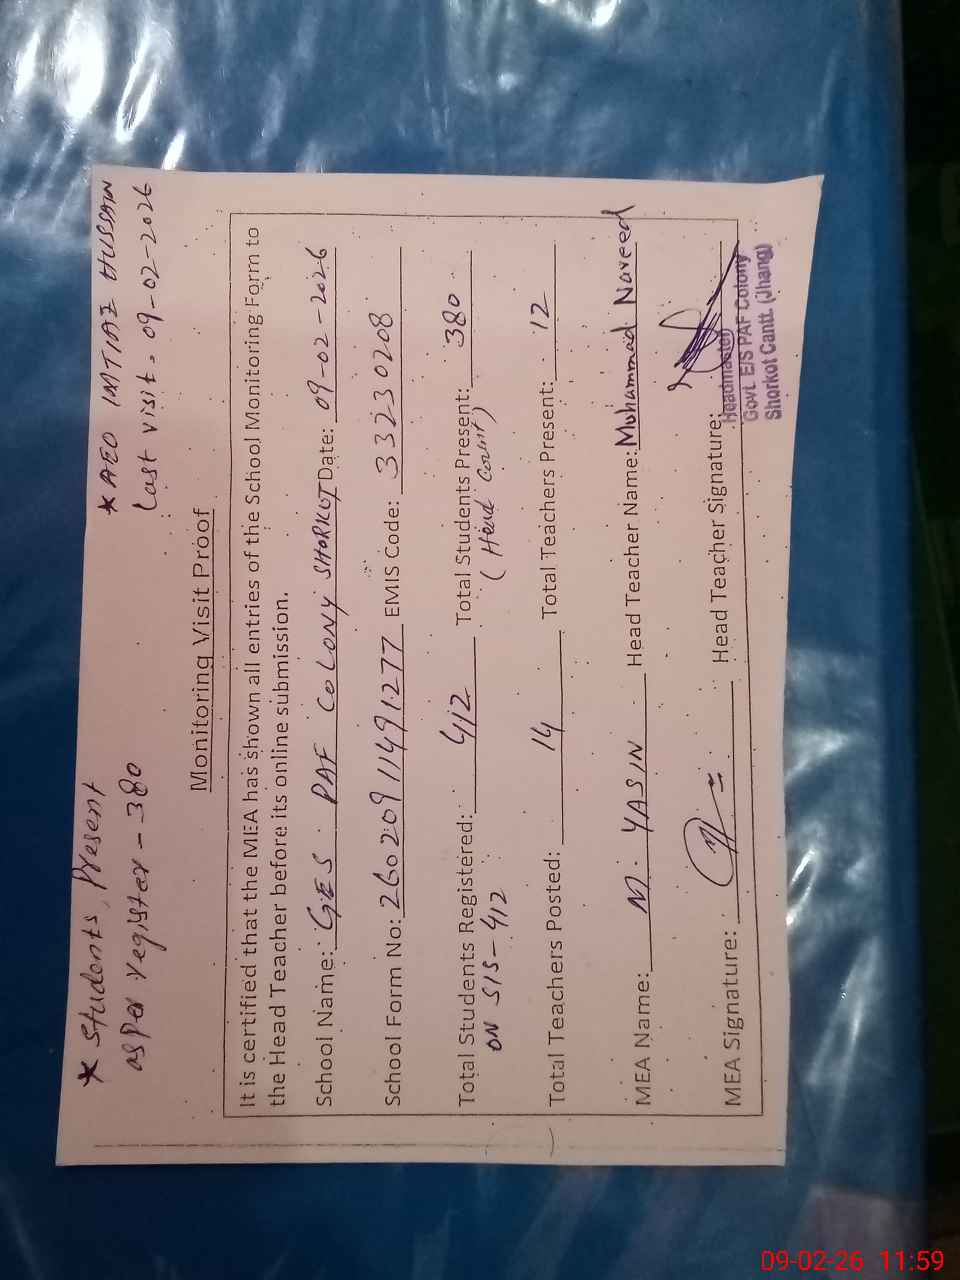 * Students, Present
as per register - 380
* AEO IMTIAZ HUSSAIN
Last visit. 09-02-2026
Monitoring Visit Proof
It is certified that the MEA has shown all entries of the School Monitoring Form to
the Head Teacher before its online submission.
School Name: GES PAF COLONY SHORKOT Date: 09-02-2026
School Form No: 26020911491277 EMIS Code: 33230208
Total Students Registered: 412 Total Students Present: 380
ON SIS - 412 (Head Count)
Total Teachers Posted: 14 Total Teachers Present: 12
MEA Name: M. YASIN Head Teacher Name: Muhammad Naveed
MEA Signature: Head Teacher Signature:
Headmaster
Govt. E/S PAF Colony
Shorkot Cantt. (Jhang)
09-02-26 11:59